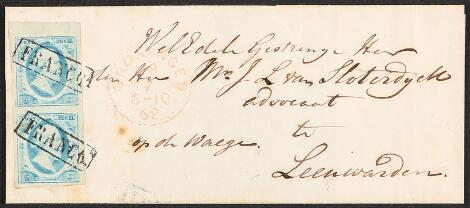 WelEdele Gestrenge Heer
den Heer Mr. J L van Sloterdyck
advocaat
te
op de Waege.
Leeuwarden.
FRANCO
FRANCO
GRONINGEN
5-10
62